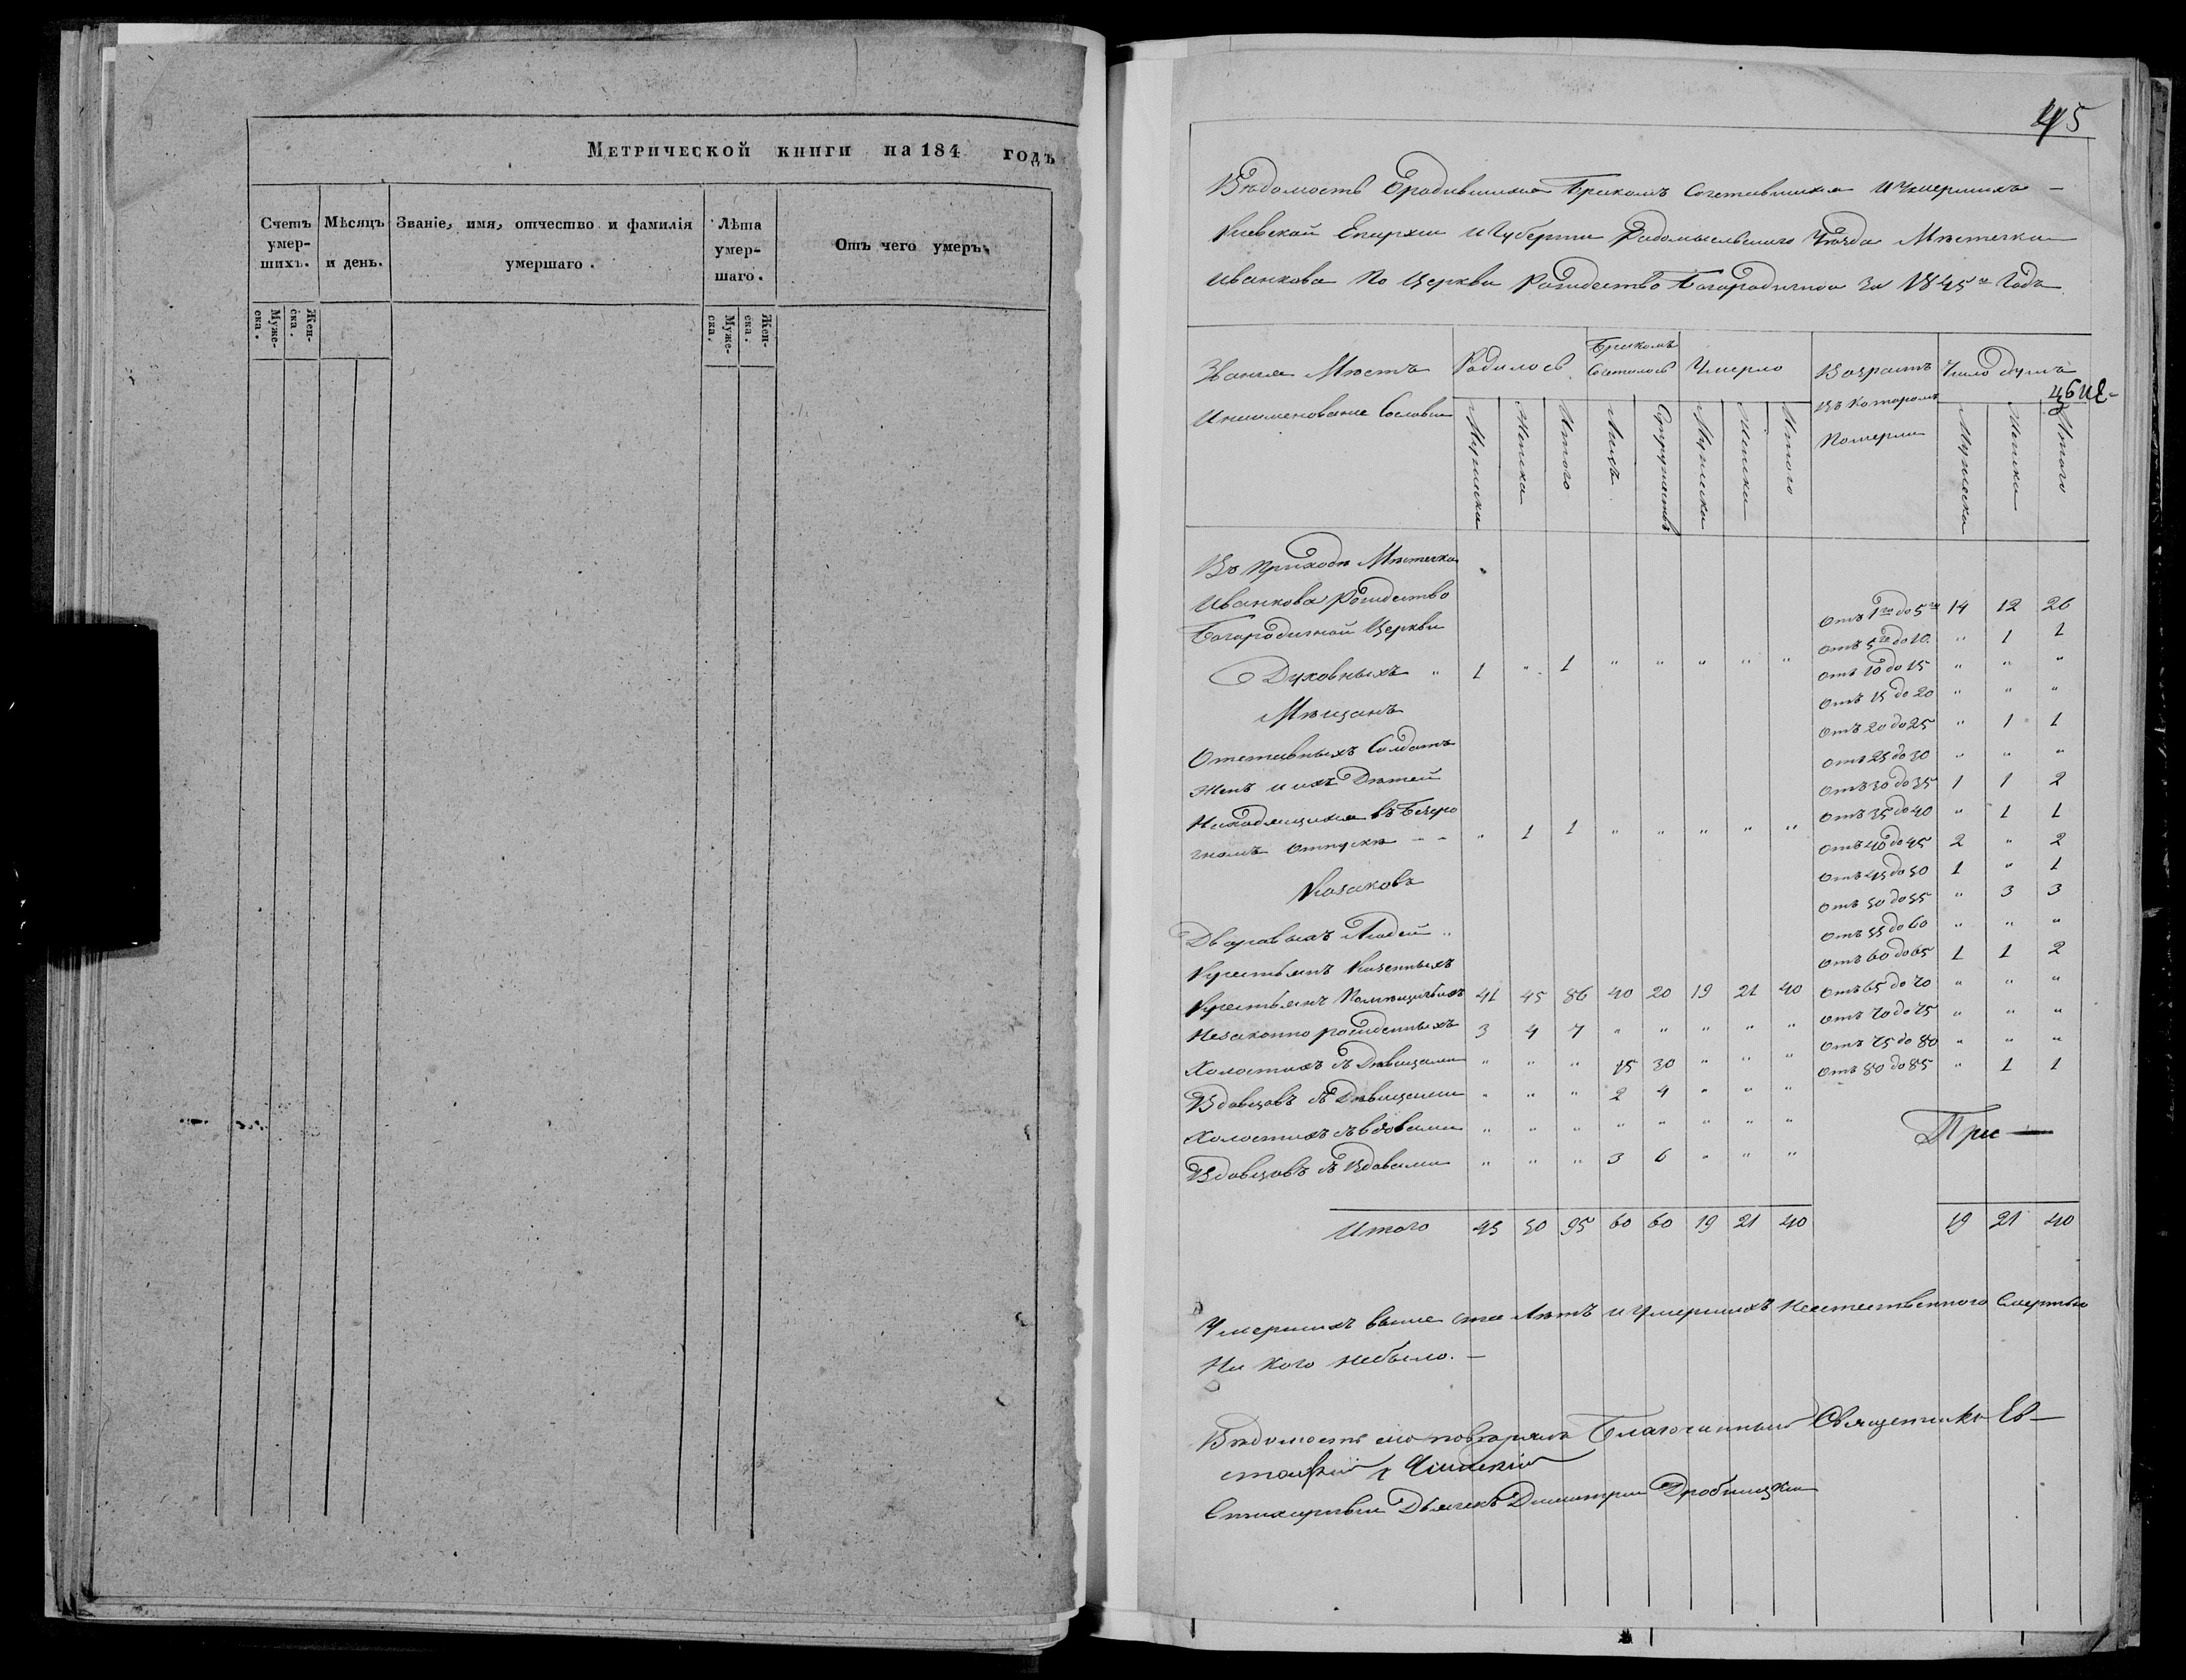 Метрической книги на 184 годъ
Счетъ умер-шихъ. Мѣсяцъ и день. Званіе, имя, отчество и фамилія умершаго. Лѣта умер-шаго. Отъ чего умеръ.
Муже-ска. Жен-ска. Муже-ска. Жен-ска.
45
Вѣдомость Ородившихся Бракомъ Сочетавшихся И Умершихъ –
Киевской Епархіи И Губерніи Радомысльского Уѣзда Мѣстечка
Иванкова По Церкви Рождество Богородичной За 1845й Годъ
Званія Мѣстъ Родилось Бракомъ Сочеталось Умерло Возрастъ Число душъ
Инаименованіе Сословія Въ Которомъ Померли
Мужеска Женска Итого Лицъ Супружествъ Мужеска Женска Итого Мужеска Женска Итого
Въ Приходѣ Мѣстечка
Иванкова Рождество
Богородичной Церкви
Отъ 1го до 5ти 14 12 26
Отъ 5ти до 10. " 1 1
Духовныхъ " 1 " 1 " " " " "
Отъ 10 до 15 " " "
Отъ 15 до 20 " " "
Мѣщанъ
Отъ 20 до 25 " 1 1
Отставныхъ Солдатъ
Отъ 25 до 30 " " "
Женъ и ихъ Дѣтей
Отъ 30 до 35 1 1 2
Находящихся въ Безсро
Отъ 35 до 40 " 1 1
чномъ отпускѣ - - " 1 1 " " " " "
Отъ 40 до 45 2 " 2
Отъ 45 до 50 1 " 1
Козаковъ
Отъ 50 до 55 " 3 3
Дворовыхъ Людей "
Отъ 55 до 60 " " "
Крестьянъ Казенныхъ
Отъ 60 до 65 1 1 2
Крестьянъ Помѣщичьихъ 41 45 86 40 20 19 21 40
Отъ 65 до 70 " " "
Незаконно рожденныхъ 3 4 7 " " " " "
Отъ 70 до 75 " " "
Отъ 75 до 80 " " "
Холостихъ съ Дѣвицами " " " 15 30 " " "
Отъ 80 до 85 " 1 1
Вдовцовъ съ Дѣвицами " " " 2 4 " " "
Холостихъ съ вдовами " " " " " " " "
Вдовцовъ съ Вдовами " " " 3 6 " " "
При —
Итого 45 50 95 60 60 19 21 40 19 21 40
Умершихъ выше ста Лѣтъ и Умершихъ Неестественного Смертью
Ни кого небыло. –
Вѣдомость сію повѣрялъ Благочинный Священникъ Ев-
стафій
Стихарный Дьячекъ Димитрій Дробницкій